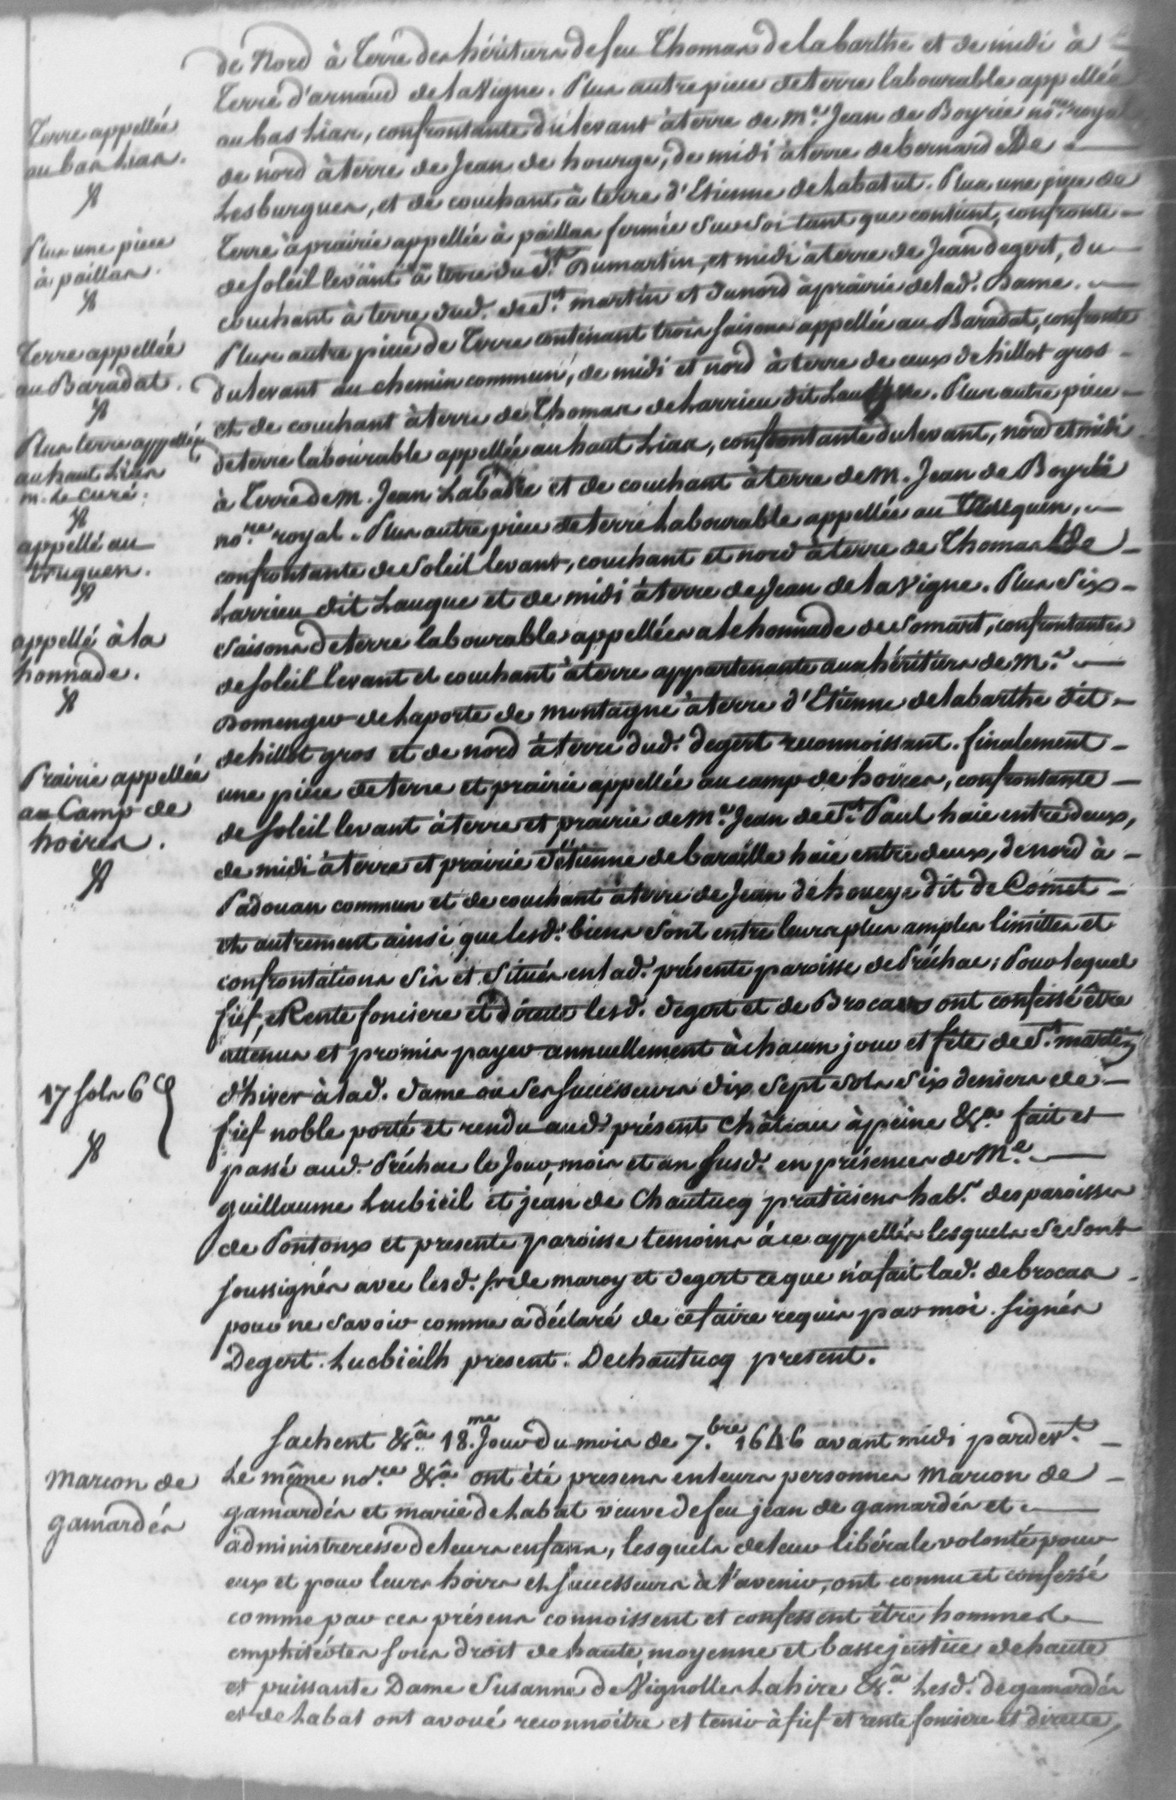 de Nord à Terre des héritiers de feu Thomas de labarthe et de midi à
Terre d'arnaud de laVigne. Plus autre piece de terre labourable appellée
Terre appellée
au bas Lias.
au bas Lias, confrontante du levant à terre de Mr. Jean de Boyrie nre. royal
de nord à terre de Jean de hourge, de midi à terre de bernard De
Lesburgues, et de couchant à terre d'Etienne de Labatut. Plus une piece de
Plus une piece
à paillas.
Terre à prairie appellée à paillas fermée sur soi tant que contient, confronte
de soleil levant à terre du Sr. Dumartin, et midi à terre de Jean degert, du
couchant à terre dud. de St. martin et du nord à prairie de lad. Dame.
Terre appellée
au Baradat.
Plus autre piece de Terre contenant trois saisons appellée au Baradat, confronte
du levant au chemin commun, de midi et nord à terre de ceux de hillot gros
et de couchant à terre de Thomas de Larrieu dit Lauque. Plus autre piece
Plus terre appellée
au haut Lias
m. Le curé.
de terre labourable appellée au haut Lias, confrontante du levant, nord et midi
à Terre de M. Jean Labadie et de couchant à terre de M. Jean de Boyrie
nore. royal. Plus autre piece de terre Labourable appellée au Truquen,
appellé au
truquen.
confrontante de soleil levant, couchant et nord à terre de Thomas De
Larrieu dit Lauque et de midi à terre de Jean de laVigne. Plus Six
appellé à la
honnade.
saisons de terre labourable appellées a lehonnade de Somart, confrontantes
de soleil levant et couchant à terre appartenante aux héritiers de Mr.
Domenger de Laporte de montagne à terre d'Etienne de labarthe dit
de hillot gros et de nord à terre dud. degert reconnoissant. finalement
Prairie appellée
au Camp de
hoires.
une piece de terre et prairie appellée au camp de hoires, confrontante
de soleil levant à terre et prairie de Mr. Jean de St. Paul haie entre deux,
de midi à terre et prairie d'étienne de baraille haie entre deux, de nord à
Padouan commun et de couchant à terre de Jean de houeye dit de Comet
et autrement ainsi que lesd. biens sont entre leurs plus amples limittes et
confrontations sis et situés en lad. présente paroisse de Préchac; Pour lequel
fief, Rente fonciere et directe lesd. degert et de Brocas ont confessé être
attenus et promis payer annuellement à chacun jour et fête de St. martin
17 sols 6 d
d'hiver à lad. dame ou ses successeurs dix sept sols six deniers de
fief noble porté et rendu aud. présent Château à peine &a. fait et
passé aud. Préchac le Jour, mois et an susd. en présences de Me.
guillaume Lucbieil et jean de Chautucq praticiens habts. des paroisses
de Pontonx et presente paroisse temoins à ce appellés lesquels se sont
soussignés avec lesd. sr. de maroy et degert ce que n'a fait lad. de brocas
pour ne savoir comme a déclaré de ce faire requis par moi. Signés
Degert. Lucbieilh present. Dechautucq present.
Sachent &a. 18.me Jour du mois de 7.bre 1646 avant midi pardevt.
Marcon de
gamardés
Le même nore. &a. ont été presens en leurs personnes Marcon de
gamardés et marie de Labat veuve de feu jean de gamardés et
administreresse de leurs enfans, lesquels de leur libérale volonté pour
eux et pour leurs hoirs et successeurs à l'avenir, ont connu et confessé
comme par ces présens connoissent et confessent être hommes
emphitéotes sous droit de haute, moyenne et basse justice de haute
et puissante Dame Susanne de Vignolles Lahire &a. Lesd. de gamardés
et de Labat ont avoué reconnoitre et tenir à fief et rente fonciere et directe,